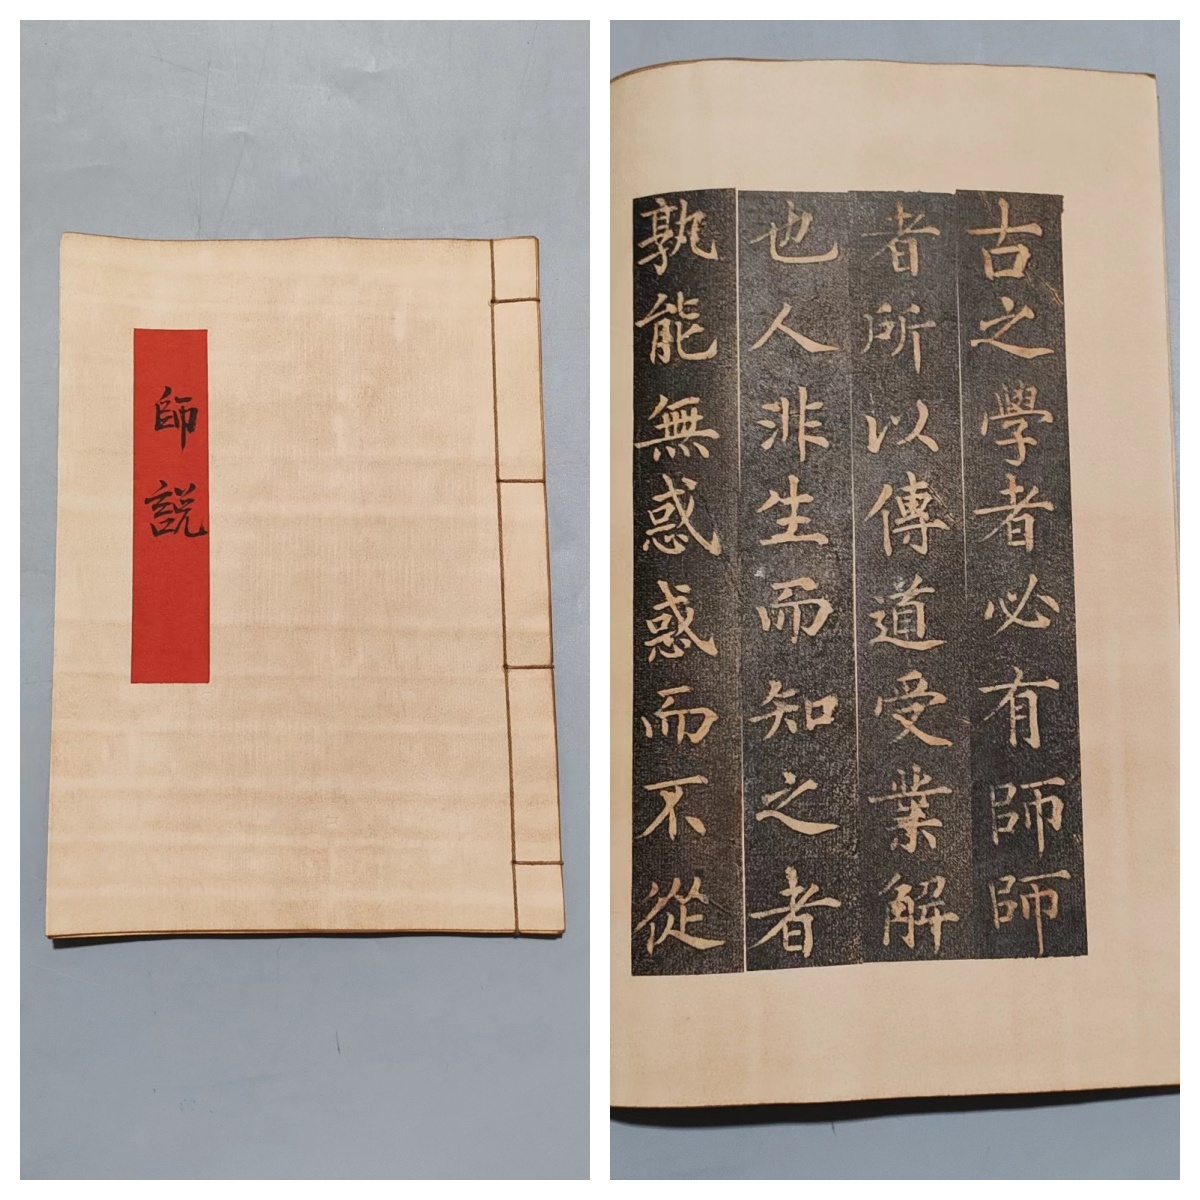 師說
古之學者必有師師
者所以傳道受業解
也人非生而知之者
孰能無惑惑而不從